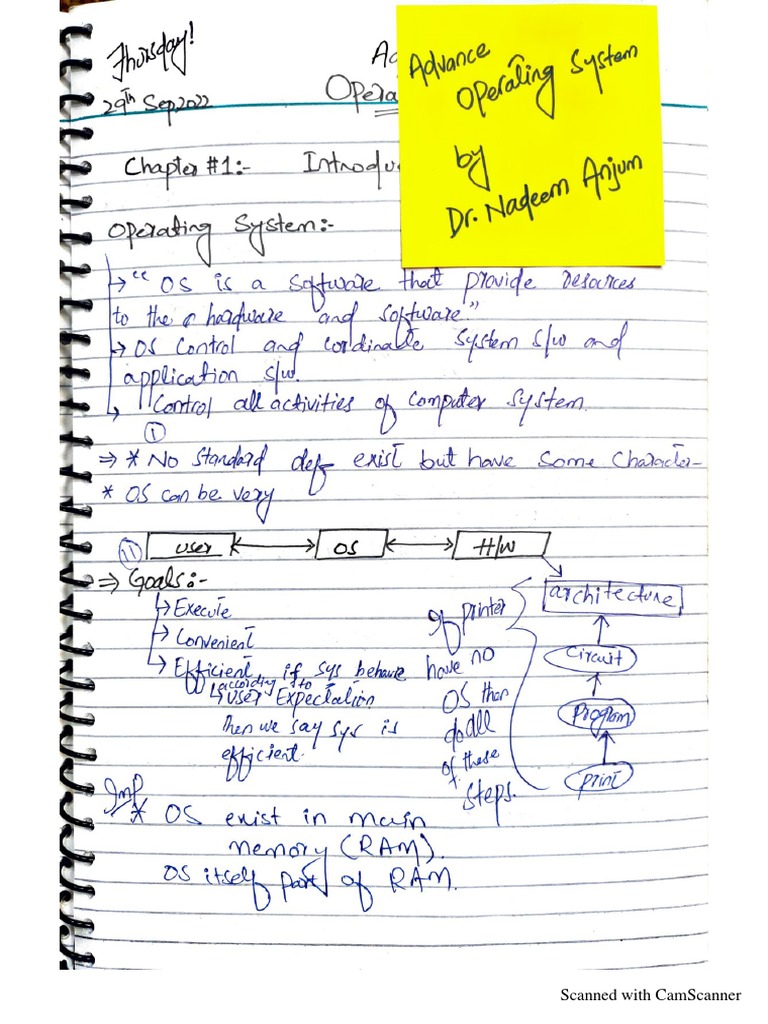 Thursday!
29th Sep 2022
Ad
Opera
Advance
Operating System
by
Dr. Nadeem Anjum
Chapter #1:- Introdu
Operating System:-
→ "OS is a Software that provide resources
to the hardware and software"
→ OS Control and cordinate System s/w and
application s/w.
↳ Control all activities of Computer System.
①
⇒ * No Standard def exist but have some Character-
* OS can be very
⑪ user ↔ OS ↔ H/W
⇒ Goals:-
↳ Execute
↳ Convenient
↳ Efficient if sys behave
according to
↳ user Expectation
then we say sys is
efficient.
If printer
have no
OS than
do all
of these
steps.
architecture
Circuit
Program
print
Imp
* OS exist in main
memory (RAM).
OS itself part of RAM.
Scanned with CamScanner